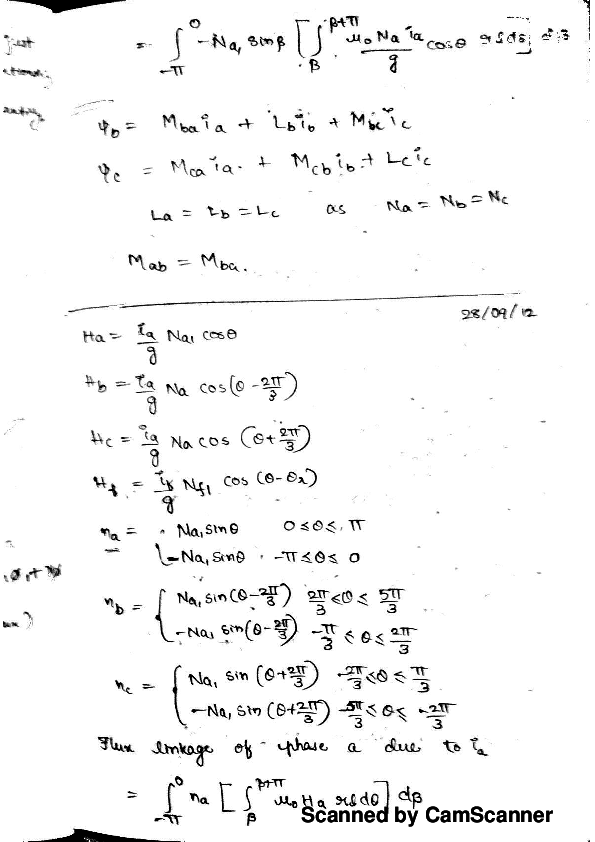 just
= ∫_{-π}^{0} -Na₁ sinβ [ ∫_{β}^{β+π} μ₀ Na ia / g cosθ rl dθ ] dβ
ψb = Mba ia + Lb ib + Mbc ic
ψc = Mca ia + Mcb ib + Lc ic
La = Lb = Lc as Na = Nb = Nc
Mab = Mba.
28/09/12
Ha = ia/g Na₁ cosθ
Hb = ia/g Na cos(θ - 2π/3)
Hc = ia/g Na cos (θ + 2π/3)
Hf = if/g Nf1 cos (θ-θr)
na = { Na₁ sinθ 0 ≤ θ ≤ π
-Na₁ sinθ -π ≤ θ ≤ 0
nb = { Na₁ sin(θ - 2π/3) 2π/3 ≤ θ ≤ 5π/3
-Na₁ sin(θ - 2π/3) -π/3 ≤ θ ≤ 2π/3
nc = { Na₁ sin (θ + 2π/3) -2π/3 ≤ θ ≤ π/3
-Na₁ sin (θ + 2π/3) -5π/3 ≤ θ ≤ -2π/3
Flux linkage of phase a due to ia
= ∫_{-π}^{0} na [ ∫_{β}^{β+π} μ₀ Ha rl dθ ] dβ
Scanned by CamScanner